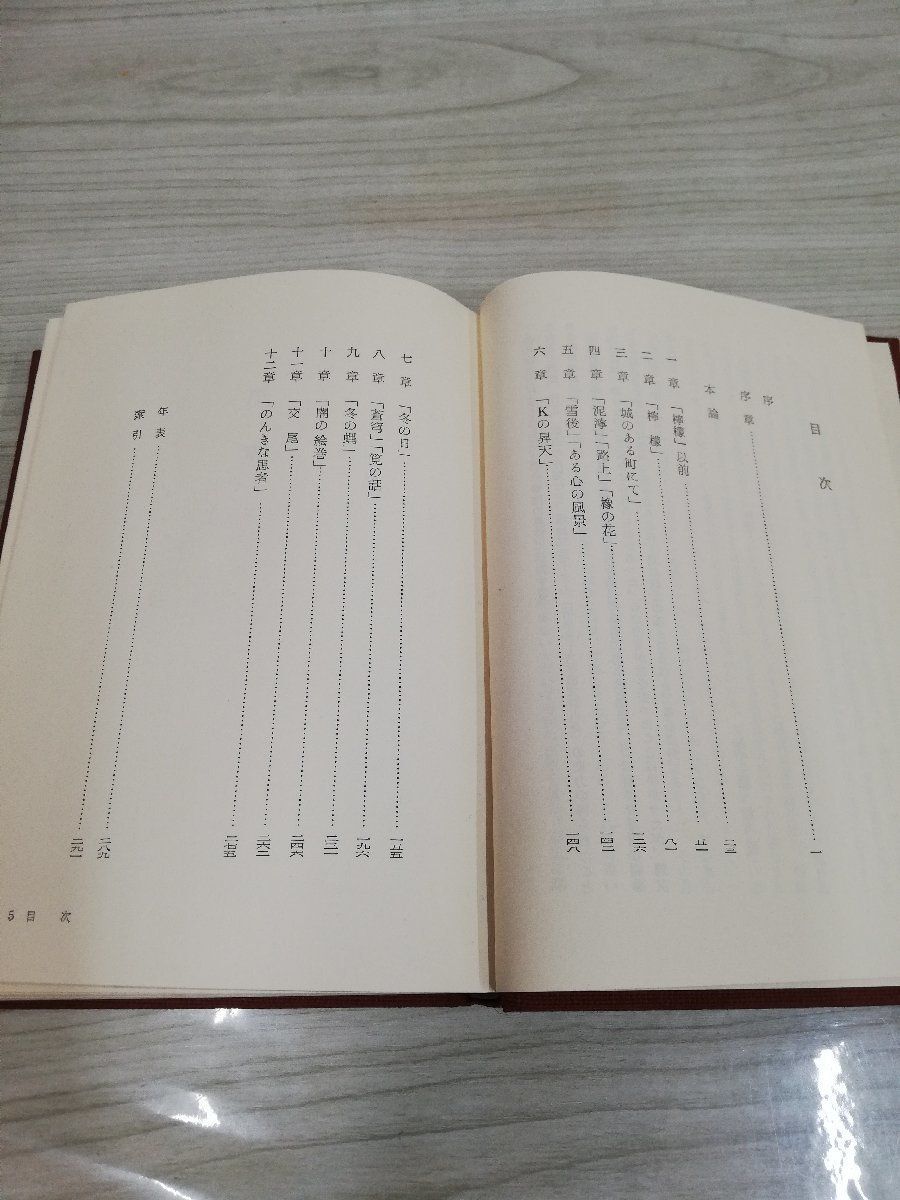 目次
序
序章……一
本論
一章 「檸檬」以前……二三
二章 「檸檬」……五一
三章 「城のある町にて」……八一
四章 「泥濘」「路上」「橡の花」……一二六
五章 「雪後」「ある心の風景」……一四二
六章 「Kの昇天」……一四八
七章 「冬の日」……一五五
八章 「蒼穹」「筧の話」……一九六
九章 「冬の蠅」……二三一
十章 「闇の絵巻」……二四六
十一章 「交尾」……二六二
十二章 「のんきな患者」……二七五
年表……二八九
索引……二九一
5 目次